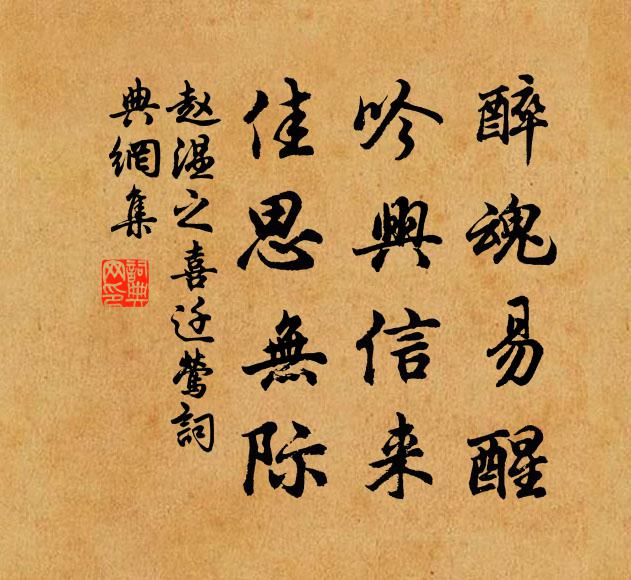 醉魂易醒
吟興信来
佳思無际
赵温之喜迁莺詞
典網集
詞典网印